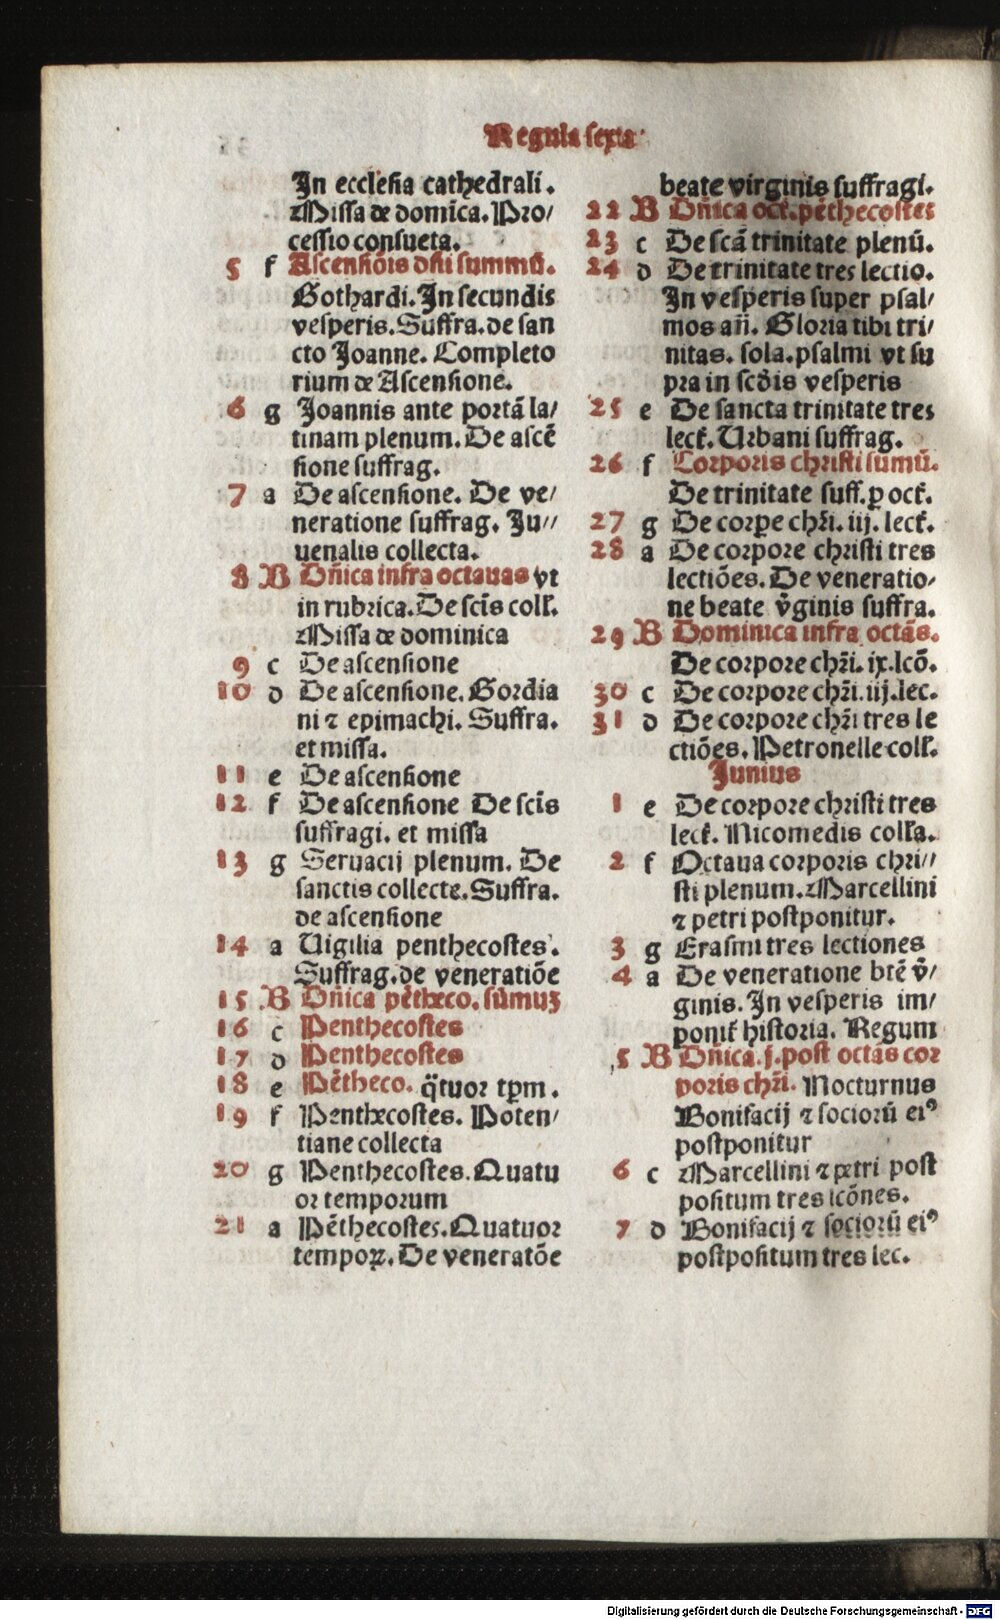 Regula sexta
In ecclesia cathedrali.
Missa de domĩca. Pro/
cessio consueta.
5 f Ascensiõis dñi summũ.
Gothardi. In secundis
vesperis. Suffra. de san
cto Joanne. Completo
rium de Ascensione.
6 g Joannis ante portã la/
tinam plenum. De ascẽ
sione suffrag.
7 a De ascensione. De ve/
neratione suffrag. Ju//
uenalis collecta.
8 B Dñica infra octauas vt
in rubrica. De scis coll.
Missa de dominica
9 c De ascensione
10 d De ascensione. Gordia
ni ⁊ epimachi. Suffra.
et missa.
11 e De ascensione
12 f De ascensione De scis
suffragi. et missa
13 g Seruacij plenum. De
sanctis collecte. Suffra.
de ascensione
14 a Vigilia penthecostes.
Suffrag. de veneratiõe
15 B Dñica pẽtheco. sũmuz
16 c Penthecostes
17 d Penthecostes
18 e Pẽtheco. q̃tuor tꝑm.
19 f Penthecostes. Poten/
tiane collecta
20 g Penthecostes. Quatu
or temporum
21 a Pẽthecostes. Quatuor
tempoꝝ. De veneratõe
beate virginis suffragi.
22 B Dñica oct̃. pẽthecostes
23 c De scã trinitate plenũ.
24 d De trinitate tres lectio.
In vesperis super psal/
mos añ. Gloria tibi tri/
nitas. sola. psalmi vt su
pra in scðis vesperis
25 e De sancta trinitate tres
lect̃. Urbani suffrag.
26 f Corporis christi sumũ.
De trinitate suff. ꝑ oct̃.
27 g De corꝑe chr̃i. iij. lect̃.
28 a De corpore christi tres
lectiões. De veneratio/
ne beate ṽginis suffra.
29 B Dominica infra octãs.
De corpore chr̃i. ix. lcõ.
30 c De corpore chr̃i. iij. lec.
31 d De corpore chr̃i tres le
ctiões. Petronelle coll.
Junius
1 e De corpore christi tres
lect̃. Nicomedis colla.
2 f Octaua corporis chri//
sti plenum. Marcellini
⁊ petri postponitur.
3 g Erasmi tres lectiones
4 a De veneratione btẽ ṽ/
ginis. In vesperis im/
ponit̃ historia. Regum
5 B Dñica. j. post octãs cor
poris chr̃i. Nocturnus
Bonifacij ⁊ sociorũ eiꝰ
postponitur
6 c Marcellini ⁊ petri post
positum tres lcõnes.
7 d Bonifacij ⁊ sociorũ eiꝰ
postpositum tres lec.
Digitalisierung gefördert durch die Deutsche Forschungsgemeinschaft - DFG